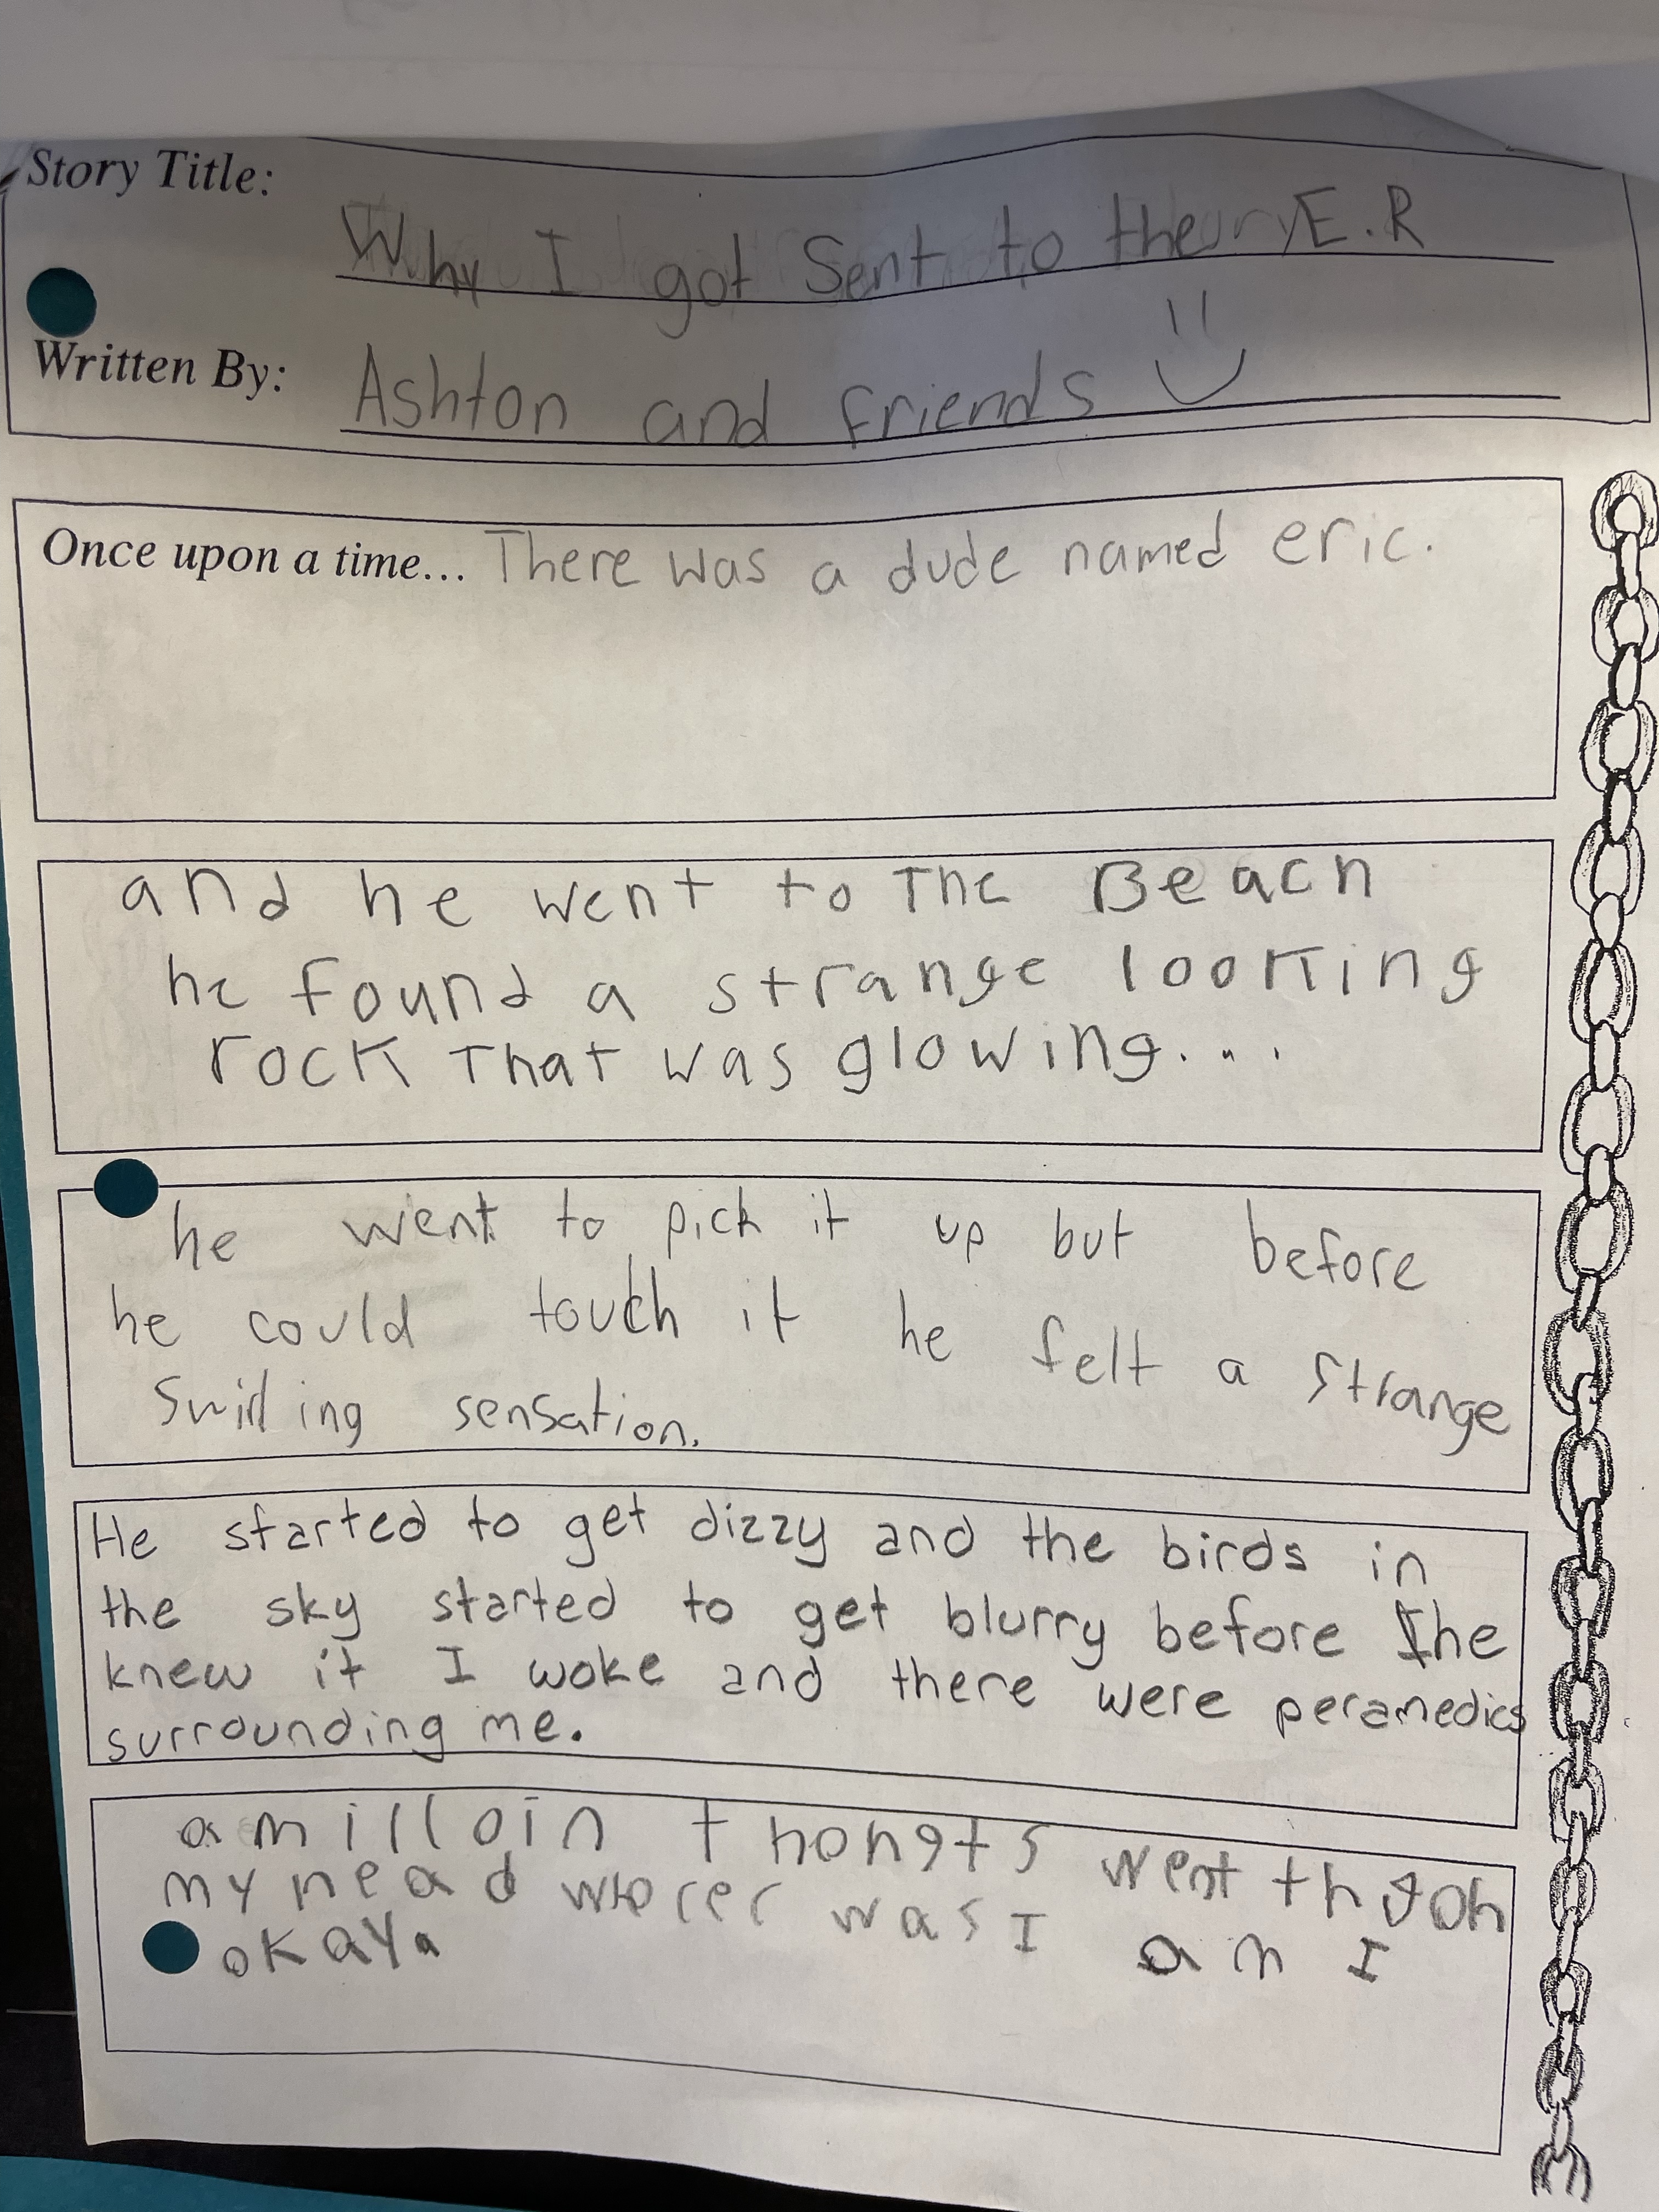 Story Title:
Why I got Sent to the E.R
Written By:
Ashton and friends
Once upon a time... There was a dude named eric.
and he went to The Beach
he found a strange looking
rock that was glowing...
he went to pick it up but before
he could touch it he felt a strange
Swirling sensation.
He started to get dizzy and the birds in
the sky started to get blurry before he
knew it I woke and there were peramedics
surrounding me.
a milloin thongts went thgoh
my head was I am I
okay.